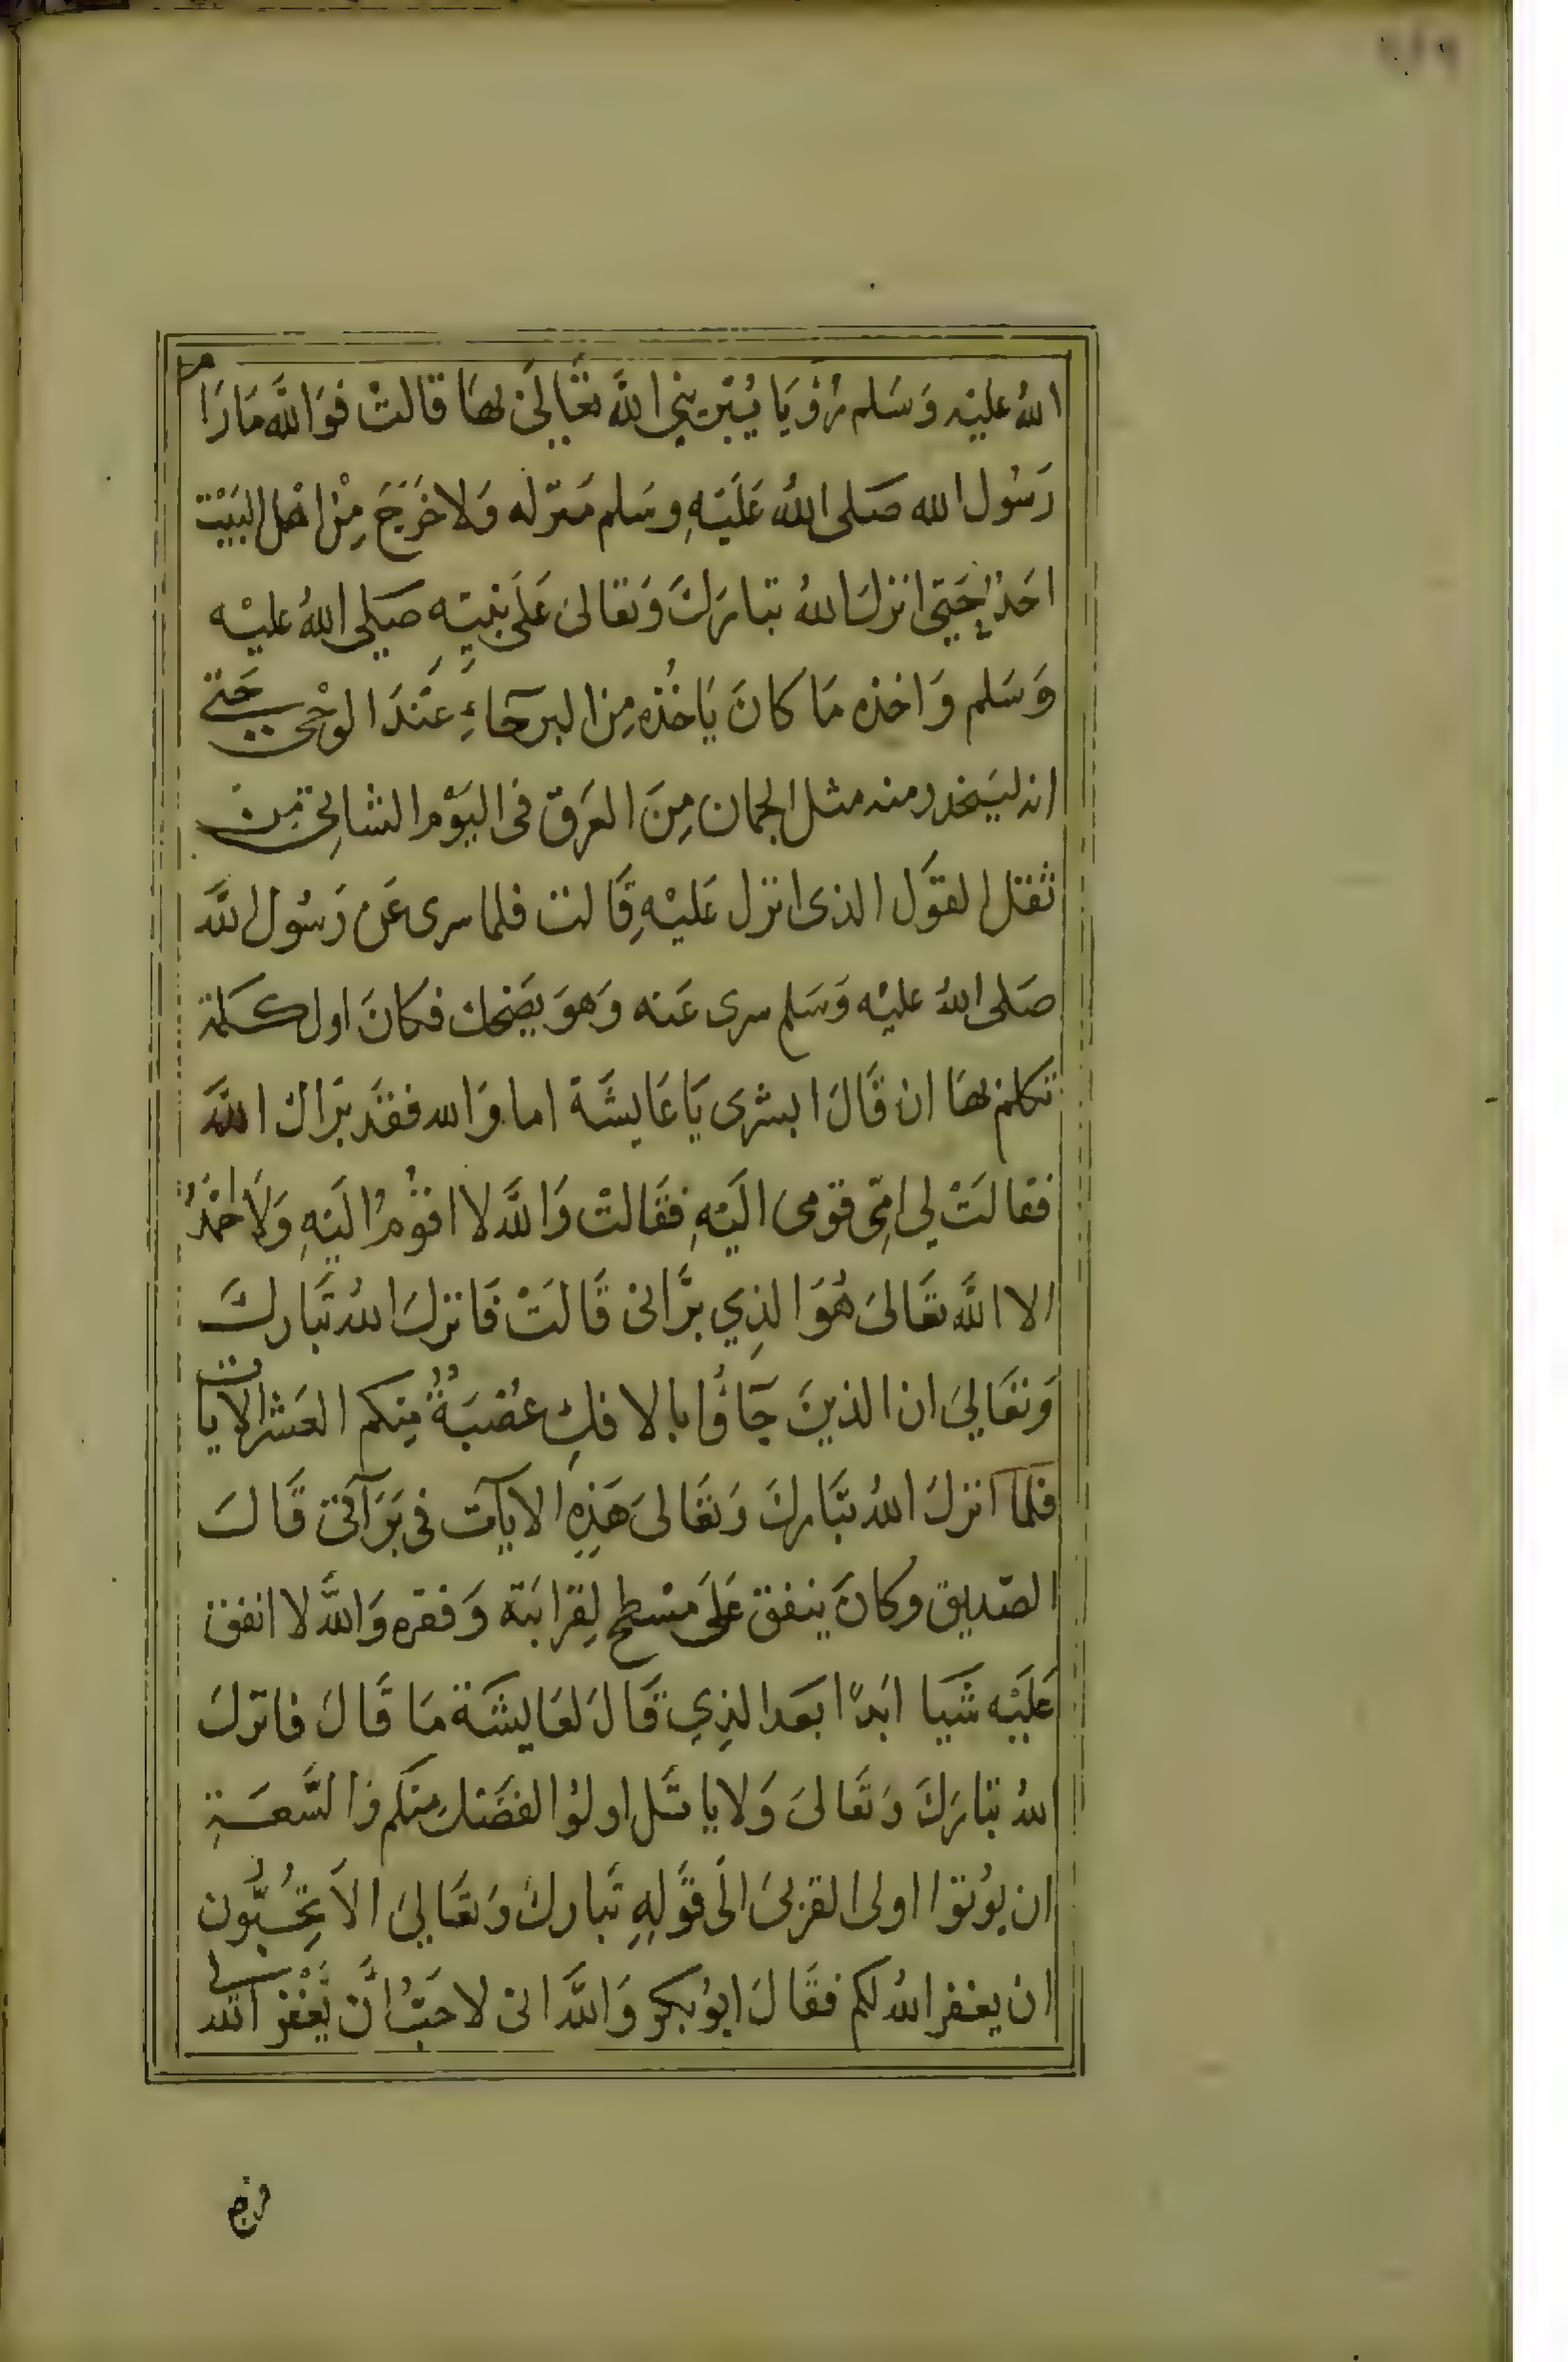 الله عليه وَسَلم رُؤيَا يُبَرئني الله تعَالىٰ بهَا قالتْ فوَالله مَا رَام
رَسُول الله صَلى اللهُ عَليْهِ وسَلم منزله وَلا خَرَجَ مِنْ اهل البَيْت
احَد حَتى انزلَ اللهُ تبارَكَ وَتعَالىَ عَلَى نبيّهِ صَلى اللهُ عليْه
وَسَلم وَاخذه مَا كانَ يَاخُذه مِن البرحَاءِ عَندَ الوَحْى حَتى
انه ليَنحدر منه مثل الجمان مِنَ العَرق فى اليَوْم الشاتى مِن
ثقل القَول الذى انزل عَليْهِ قَالت فلما سرى عَن رَسُول الله
صَلى اللهُ عليْه وَسَلم سرى عَنه وَهوَ يضَحك فكانَ اول كلمة
تكلم بهَا ان قَالَ ابشرى يَا عَايشَة اما وَالله فقَد برَاك الله
فقالَتْ لي امّى قومى اليْهِ فقَالتْ وَالله لا اقوُمُ اليْهِ وَلاَ احْمَدُ
الا الله تعَالىَ هُوَ الذِي برَّانى قَالَتْ فَانزلَ اللهُ تَبارك
وَتعَاليَ ان الذينَ جَاؤُا بالافكِ عُصْبَةٌ مِنكم العَشر الايات
فلما انزلَ اللهُ تبَاركَ وَتعَالىَ هَذِهِ الايآت فى بَرَآئتى قَالَ
الصّديق وكانَ ينفق عَلىَ مسْطح لِقرَابَتة وَفقره وَالله لا انفق
عَليْه شَيا ابَدًا بعَد الذِي قَالَ لعَايشَة مَا قَالَ فانزلَ
اللهُ تبَارَكَ وَتَعَالىَ وَلا ياتَل اولوُا الفضَل مِنكم وَالسَّعَةِ
ان يوُتوا اولى القربىَ الَى قوَلِهِ تَباركَ وَتعَاليَ الاَ تحِبُّون
ان يغفر اللهُ لكم فقَالَ ابوُ بكر وَالله انى لاحَبُّ اَن يَّغْفر الله لى
فرجع